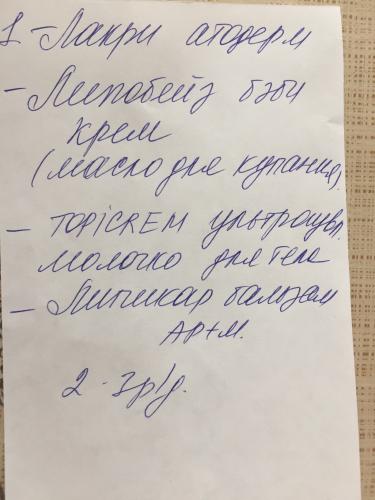 1 - Лакри атодерм
- Липобейз бэби
крем
(масло для купания)
- TOPICREM ультраувл.
молочко для тела
- Липикар бальзам
AP+M.
2 - 3р/д.